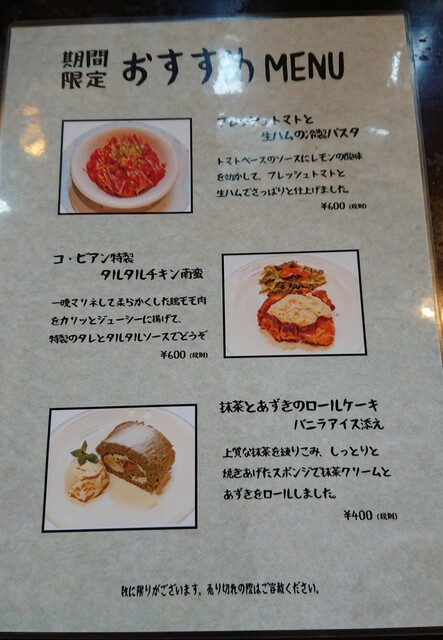 期間
限定 おすすめ MENU
フレッシュトマトと
生ハムの冷製パスタ
トマトベースのソースにレモンの酸味
を効かして、フレッシュトマトと
生ハムでさっぱりと仕上げました。
¥600 (税別)
コ・ビアン特製
タルタルチキン南蛮
一晩マリネして柔らかくした鶏モモ肉
をカリッとジューシーに揚げて、
特製のタレとタルタルソースでどうぞ
¥600 (税別)
抹茶とあずきのロールケーキ
バニラアイス添え
上質な抹茶を練りこみ、しっとりと
焼きあげたスポンジで抹茶クリームと
あずきをロールしました。
¥400 (税別)
数に限りがございます。売り切れの際はご容赦ください。